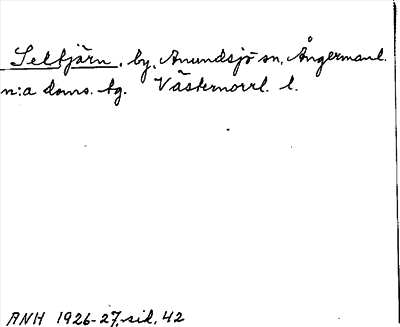 Selbjärn, by, Anundsjö sn, Ångermanl.
n:a doms. tg. Västernorrl. l.
ANH 1926-27, sid. 42